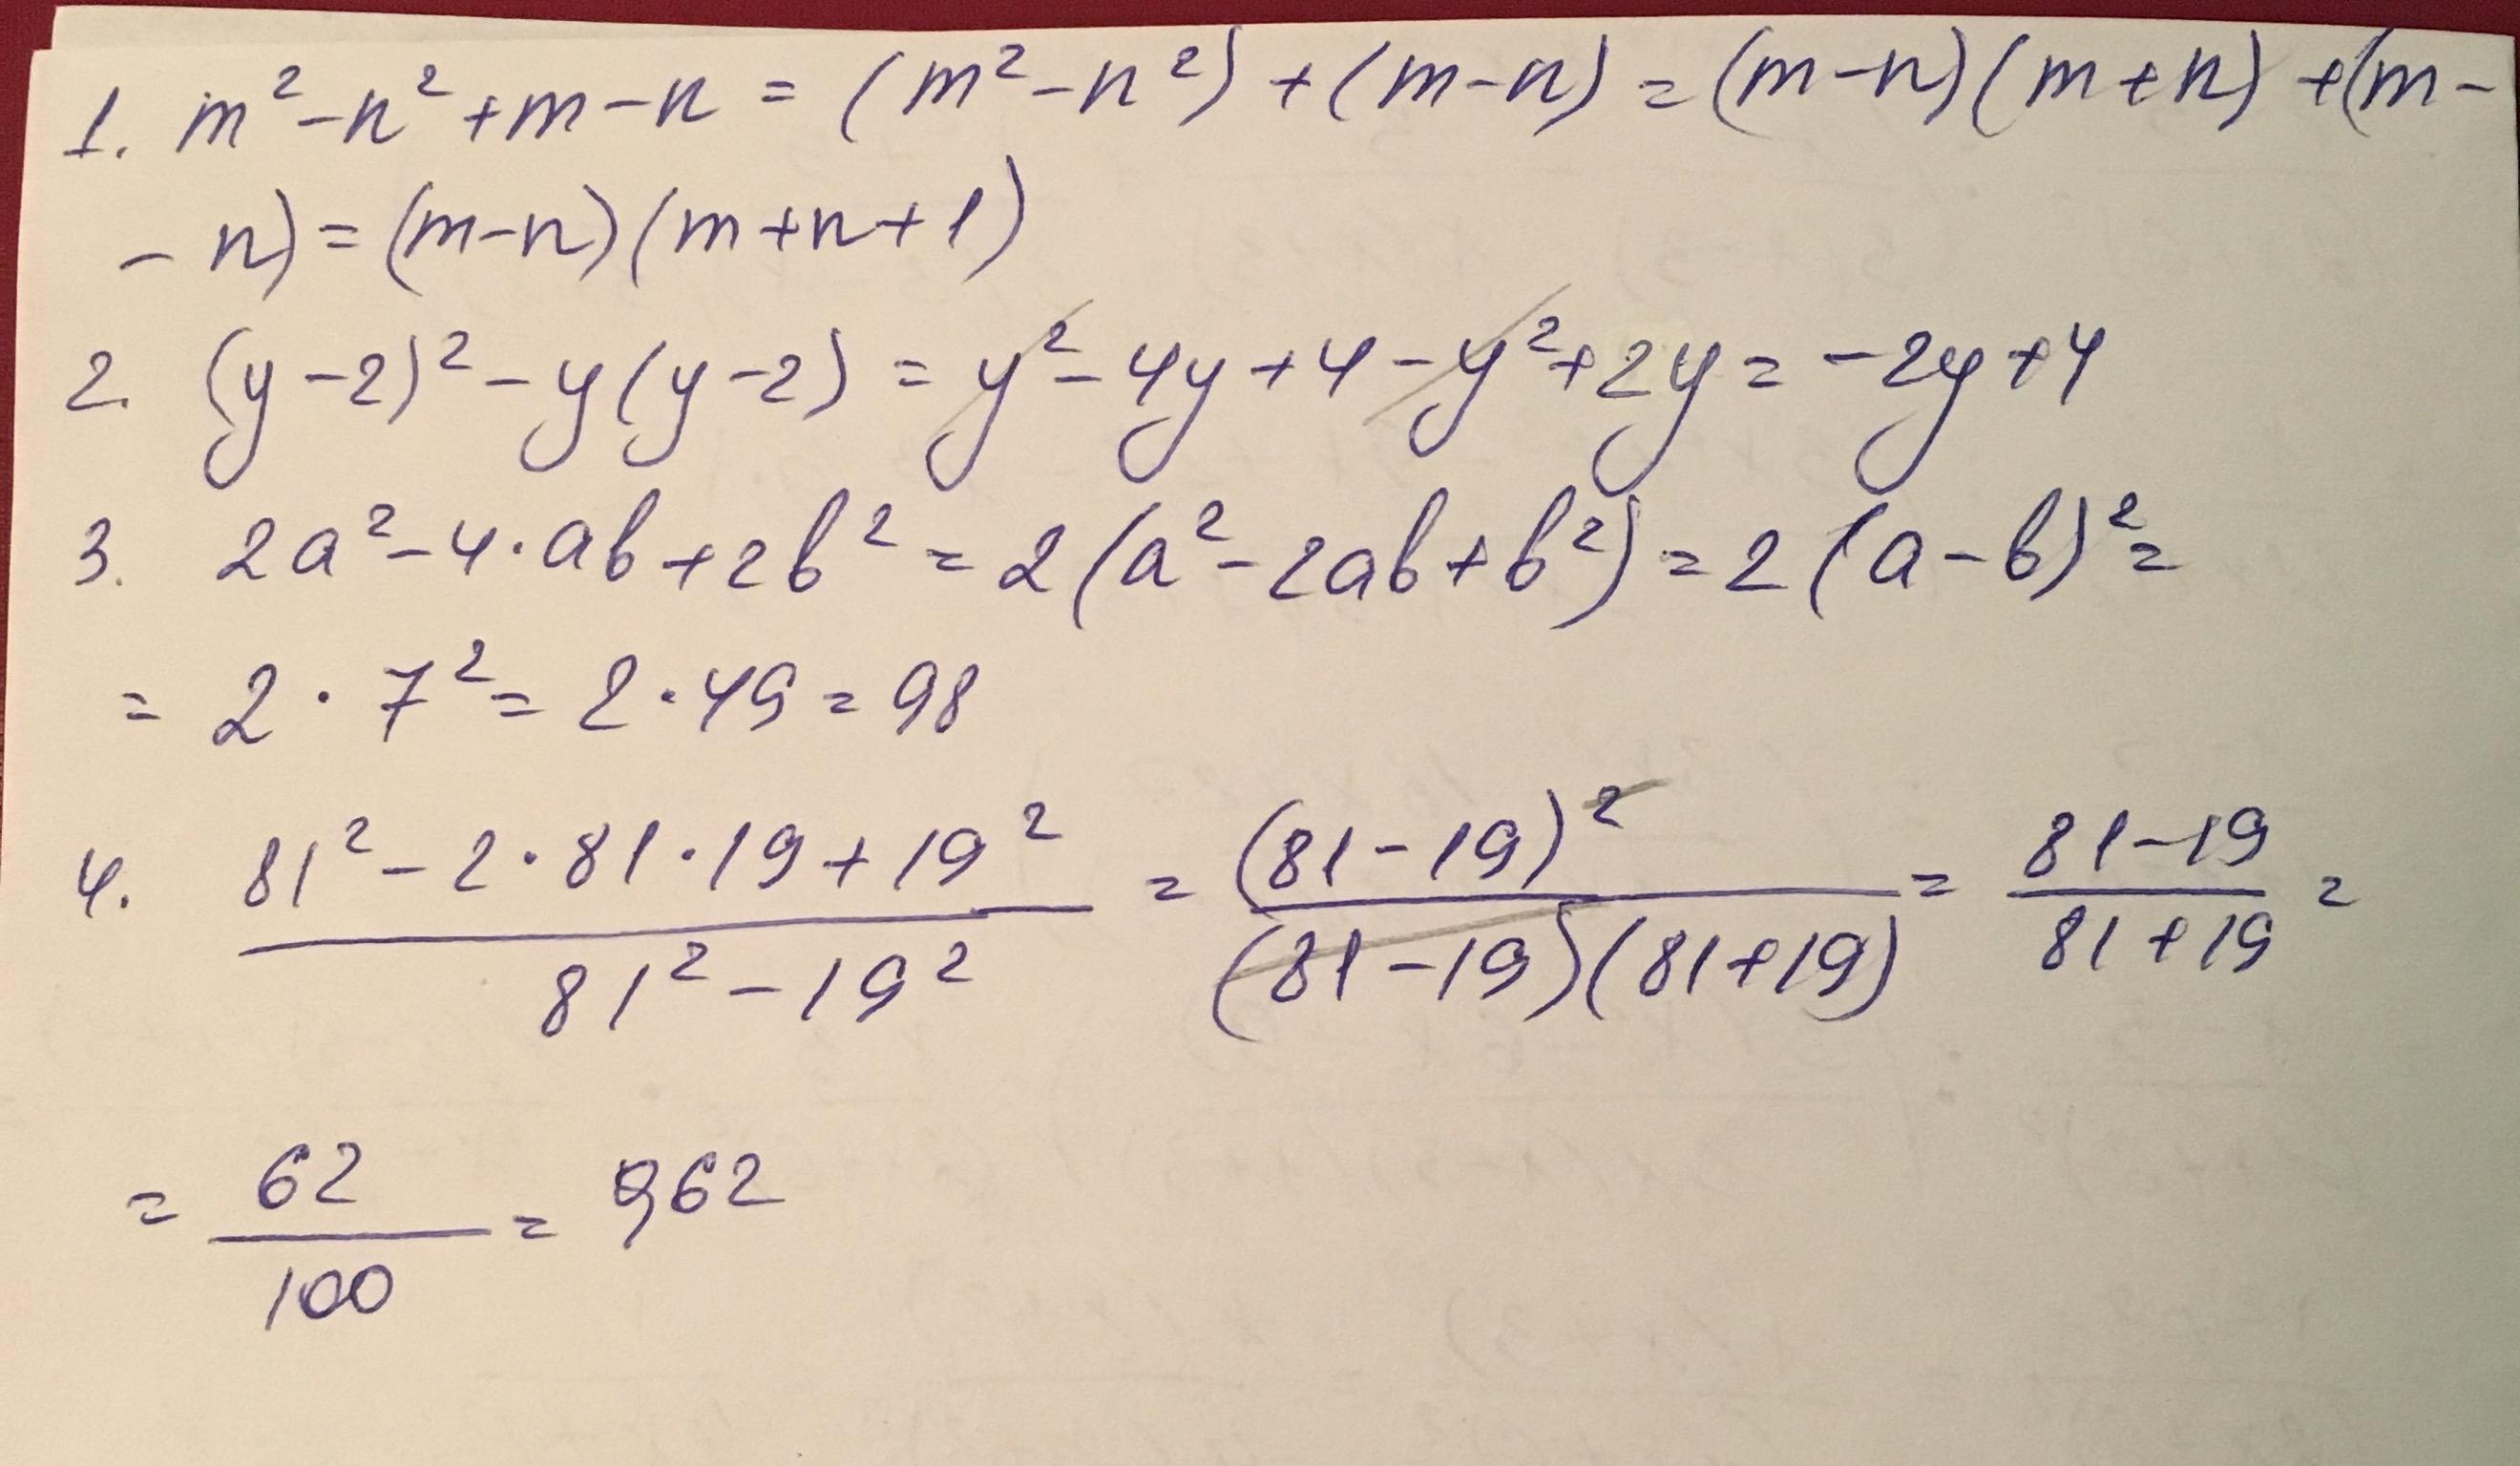 1. m² - n² + m - n = (m² - n²) + (m - n) = (m - n)(m + n) + (m -
- n) = (m - n)(m + n + 1)
2. (y - 2)² - y(y - 2) = y² - 4y + 4 - y² + 2y = -2y + 4
3. 2a² - 4·ab + 2b² = 2(a² - 2ab + b²) = 2(a - b)² =
= 2 · 7² = 2 · 49 = 98
4. (81² - 2·81·19 + 19²)/(81² - 19²) = (81 - 19)²/((81 - 19)(81 + 19)) = (81 - 19)/(81 + 19) =
= 62/100 = 0,62